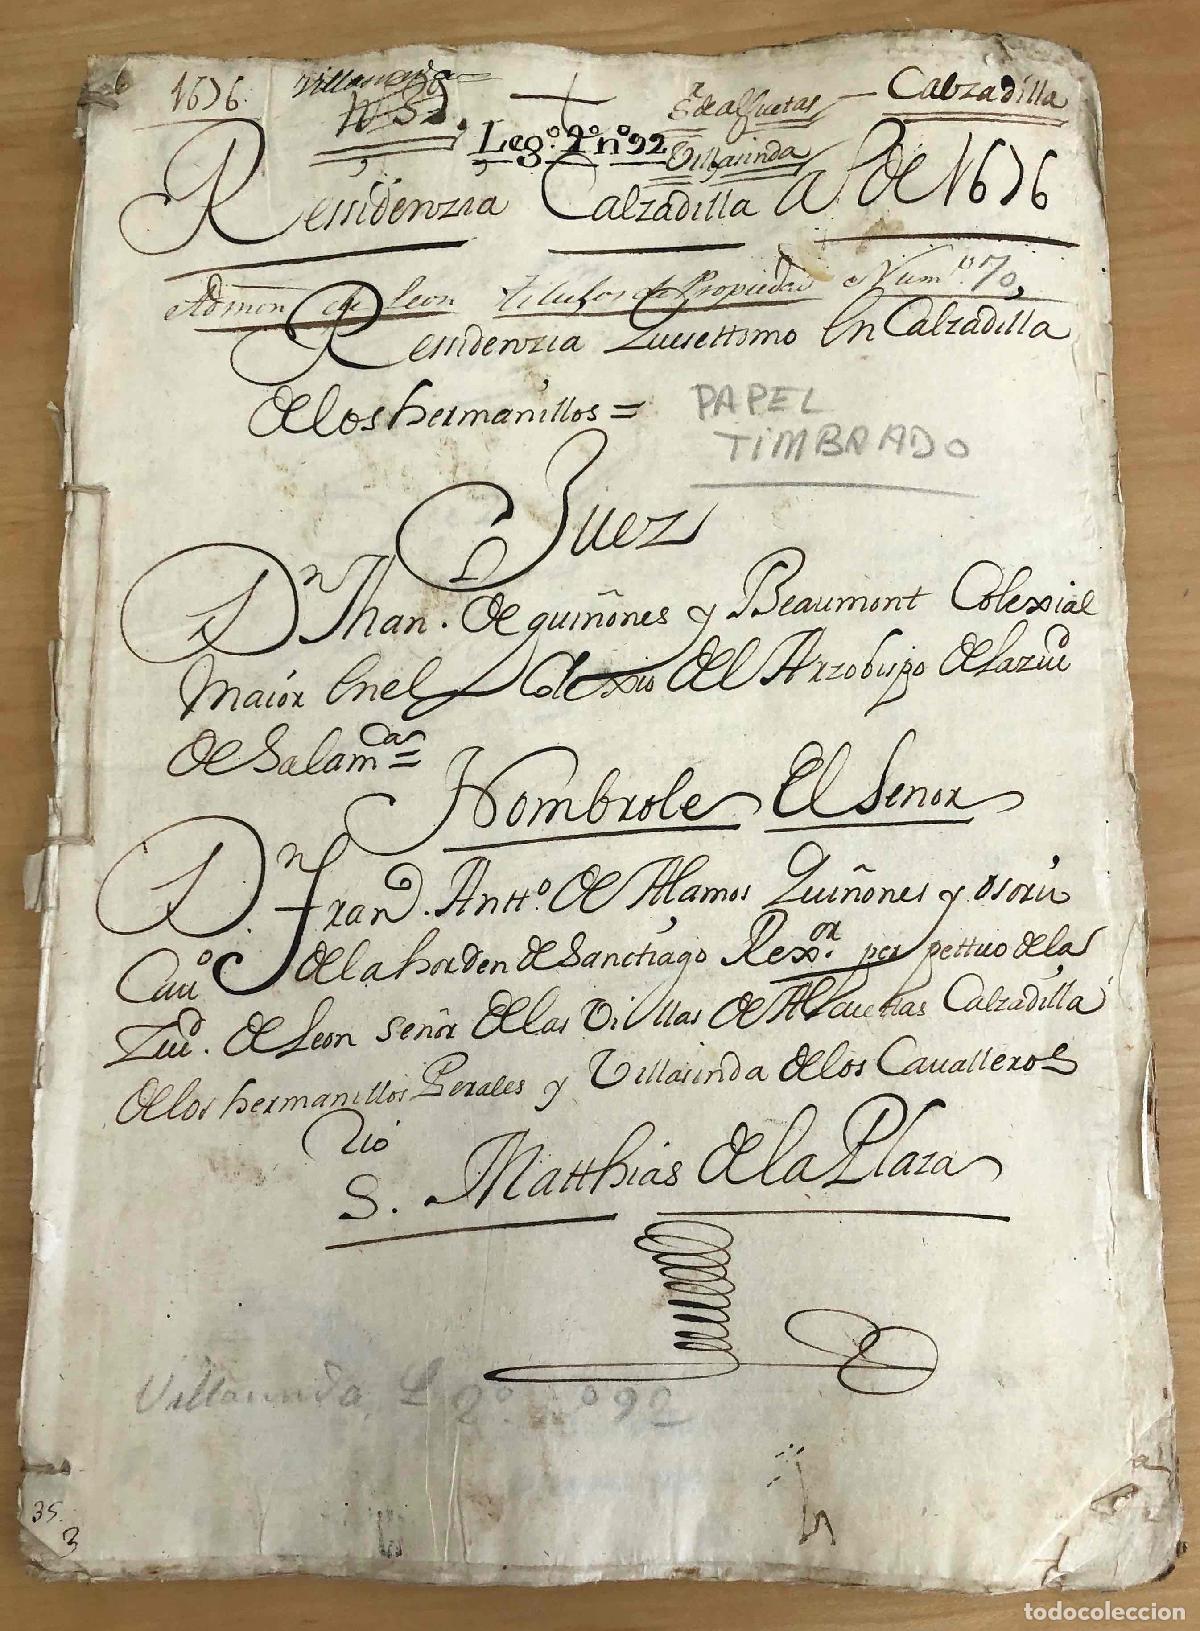 1676. Villasinda + Sr de alfuetas – Calzadilla
Legº. 2º. nº 92 Villasinda
Ressidenzia Calzadilla a. de 1676
Admon de Leon titulos de Propiedad Num.º 70,
Ressidenzia Quesettomo En Calzadilla
de los hermanillos =
PAPEL
TIMBRADO
Juez
Dn Jhan. de quiñones y Beaumont Colexial
Maior En el Colexio del Arzobispo de la ziud
de Salamca =
Nombrole El Senor
Dn. Fran. Antto. de Alamos Quiñones y osorio
Cauo de la horden de Sanctiago Rexor. perpettuo de la
Ziud. de Leon señor de las Villas de Alfuettas Calzadilla
de los hermanillos Perales y Villasinda de los Cavalleros
S. rio Matthias de la Plaza
Villasinda, L 2º. nº 92
35.
3
todocoleccion